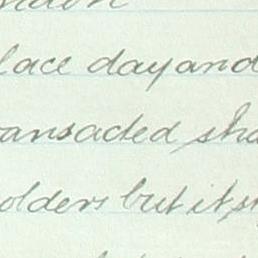 lace day and
ansacted sha
olders but it s